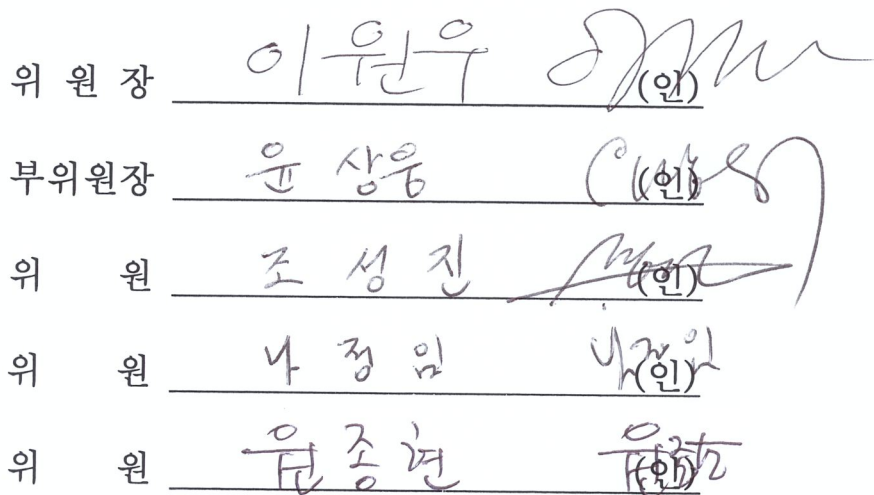 위 원 장 이원우 (인)
부위원장 윤상웅 (인)
위 원 조성진 (인)
위 원 나정임 (인)
위 원 원종현 (인)